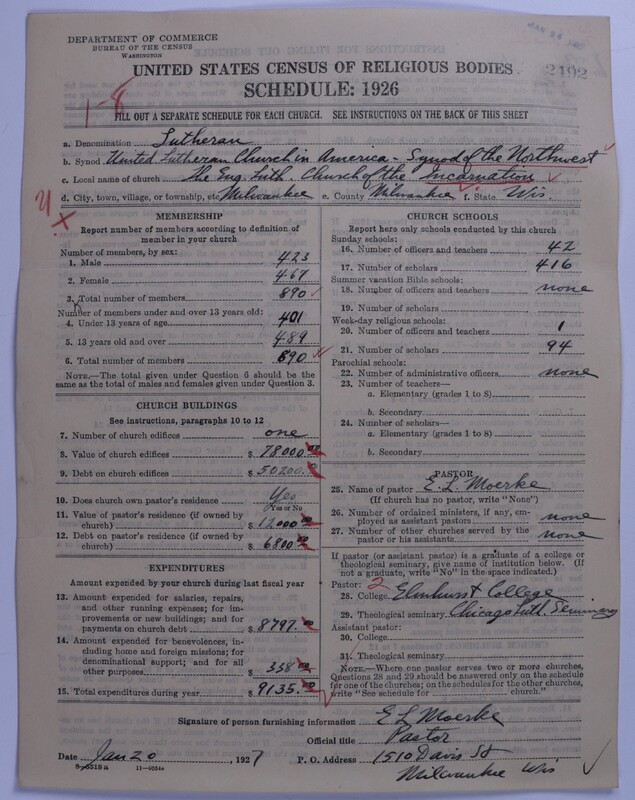 DEPARTMENT OF COMMERCE
BUREAU OF THE CENSUS
WASHINGTON
2192
UNITED STATES CENSUS OF RELIGIOUS BODIES
SCHEDULE: 1926
1-8
FILL OUT A SEPARATE SCHEDULE FOR EACH CHURCH. SEE INSTRUCTIONS ON THE BACK OF THIS SHEET
a. Denomination Lutheran
b. Synod United Lutheran Church in America - Synod of the Northwest
c. Local name of church The Eng. Luth. Church of the Incarnation
d. City, town, village, or township, etc. Milwaukee e. County Milwaukee f. State Wis.
MEMBERSHIP
Report number of members according to definition of
member in your church
Number of members, by sex:
1. Male 423
2. Female 467
3. Total number of members 890
Number of members under and over 13 years old:
4. Under 13 years of age 401
5. 13 years old and over 489
6. Total number of members 890
NOTE.—The total given under Question 6 should be
same as the total of males and females given under Question 3.
CHURCH BUILDINGS
See instructions, paragraphs 10 to 12
7. Number of church edifices one
8. Value of church edifices $ 78000.00
9. Debt on church edifices $ 50200.00
10. Does church own pastor's residence Yes
Yes or No
11. Value of pastor's residence (if owned by
church) $ 12000.00
12. Debt on pastor's residence (if owned by
church) $ 6800.00
EXPENDITURES
Amount expended by your church during last fiscal year
13. Amount expended for salaries, repairs,
and other running expenses; for im-
provements or new buildings; and for
payments on church debt $ 8797.00
14. Amount expended for benevolences, in-
cluding home and foreign missions; for
denominational support; and for all
other purposes $ 338.00
15. Total expenditures during year $ 9135.00
CHURCH SCHOOLS
Report here only schools conducted by this church
Sunday schools:
16. Number of officers and teachers 42
17. Number of scholars 416
Summer vacation Bible schools:
18. Number of officers and teachers none
19. Number of scholars
Week-day religious schools:
20. Number of officers and teachers 1
21. Number of scholars 94
Parochial schools:
22. Number of administrative officers none
23. Number of teachers—
a. Elementary (grades 1 to 8)
b. Secondary
24. Number of scholars—
a. Elementary (grades 1 to 8)
b. Secondary
PASTOR
25. Name of pastor E. L. Moerke
(If church has no pastor, write "None")
26. Number of ordained ministers, if any, em-
ployed as assistant pastors none
27. Number of other churches served by the
pastor or his assistants none
If pastor (or assistant pastor) is a graduate of a college or
theological seminary, give name of institution below. (If
not a graduate, write "No" in the space indicated.)
Pastor: 2
28. College Elmhurst College
29. Theological seminary Chicago Luth. Seminary
Assistant pastor:
30. College
31. Theological seminary
NOTE.—Where one pastor serves two or more churches,
Questions 28 and 29 should be answered only on the schedule
for one of the churches; on the schedules for the other churches,
write "See schedule for church."
Signature of person furnishing information E L Moerke
Official title Pastor
Date Jan 20, 1927 P. O. Address 1510 Davis St
Milwaukee Wis
8-5518a 11-9054a